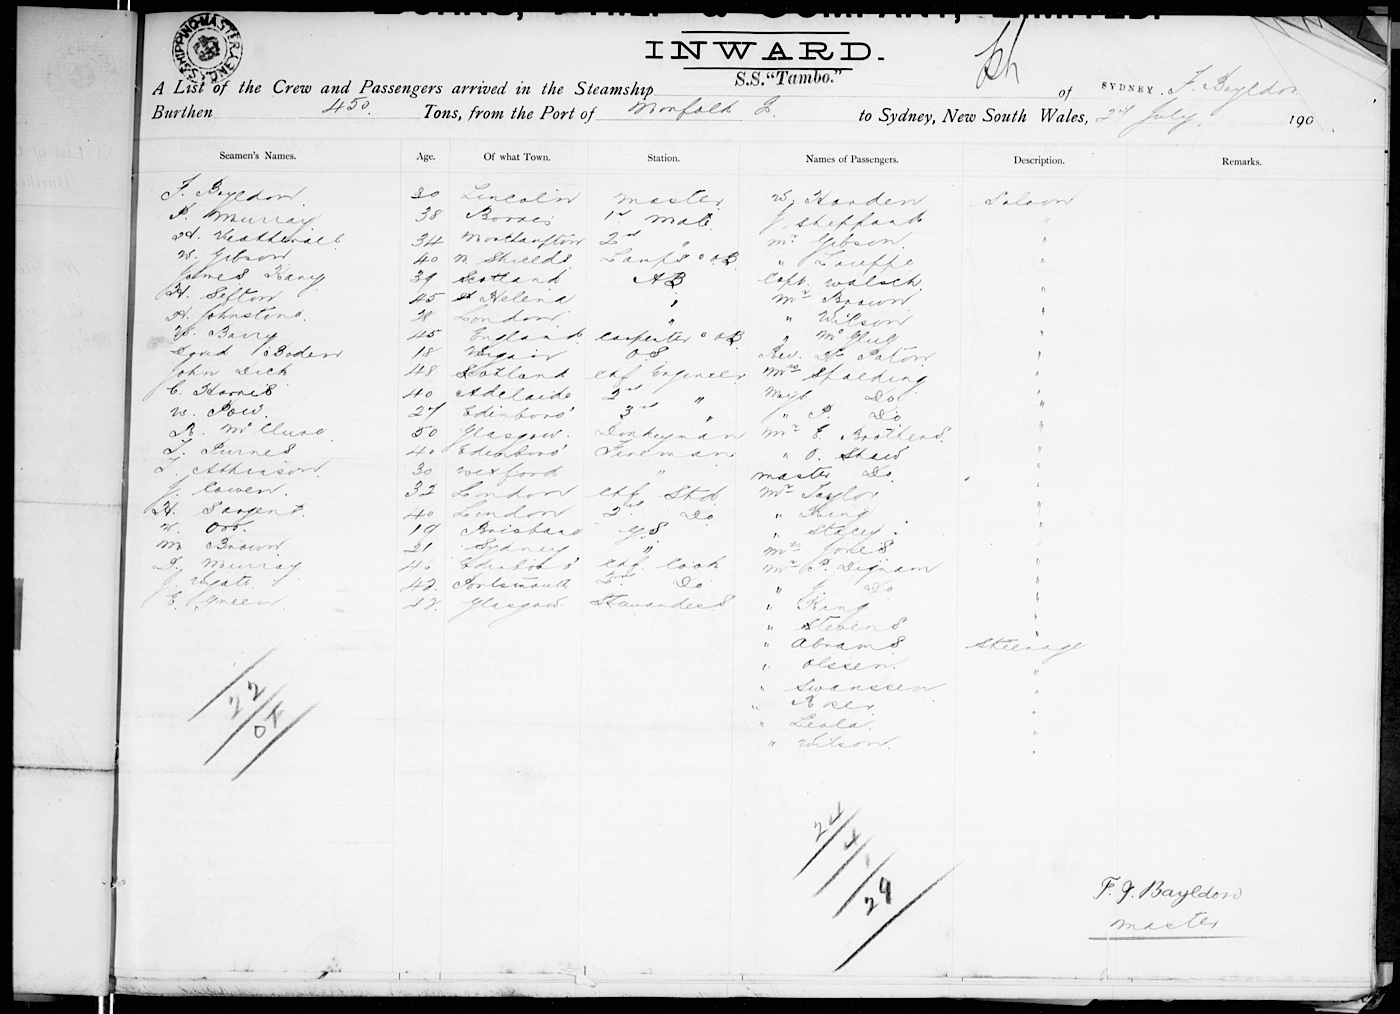 BURNS, PHILP & COMPANY, LIMITED.
INWARD.
S.S. "Tambo."
A List of the Crew and Passengers arrived in the Steamship of SYDNEY. F. Bayldon
Burthen 450. Tons, from the Port of Norfolk I. to Sydney, New South Wales, 2nd July. 190
Seamen's Names. Age. Of what Town. Station. Names of Passengers. Description. Remarks.
F. Bayldon 30 Lincoln Master W. Harden Saloon
P. Murray 38 1st Mate J Sheppard "
H. Weatherall 34 Northampton 2nd " Mr Gibson. "
W. Gibson 40 N. Shields Lamps & AB " "
James 39 Scotland AB Capt. Walsch "
H. Sefton 45 St Helena " Mr Brown "
A. Johnstone. 28 London " " Wilson "
W. Barry 45 England Carpenter & AB " "
David Boden 18 OS Rev. Dr Paton "
John Dick 48 Scotland Chf Engineer Mrs Spalding "
C. Harris 40 Adelaide 2nd " Do "
W. Pow. 27 Edinboro' 3rd " " P. Do "
R. McClure 50 Glasgow. Donkeyman Mr E. Brothers. "
T. Purves 40 Edinboro' Fireman " O. Shaw "
T. Atkinson 30 Wexford " Master Do. "
J. Cowen. 32 London Chf Std Mr Taylor "
H. Sargent. 40 London 2nd Do " King "
W. Orr. 19 Brisbane " Stacey. "
M Brown 21 Sydney " Mrs Jones "
D. Murray 46 Edinboro' Chf Cook Mr P. Dignam "
J. Wyatt. 42 Portsmouth 2nd Do " J. Do "
E. Green 42 Glasgow Stewardess " King "
" Stevens "
" Abrams Steerage
" Olssen. "
" Swanssen "
" "
" "
" Wilson. "
22
24
4
1
29
F. J. Bayldon
Master